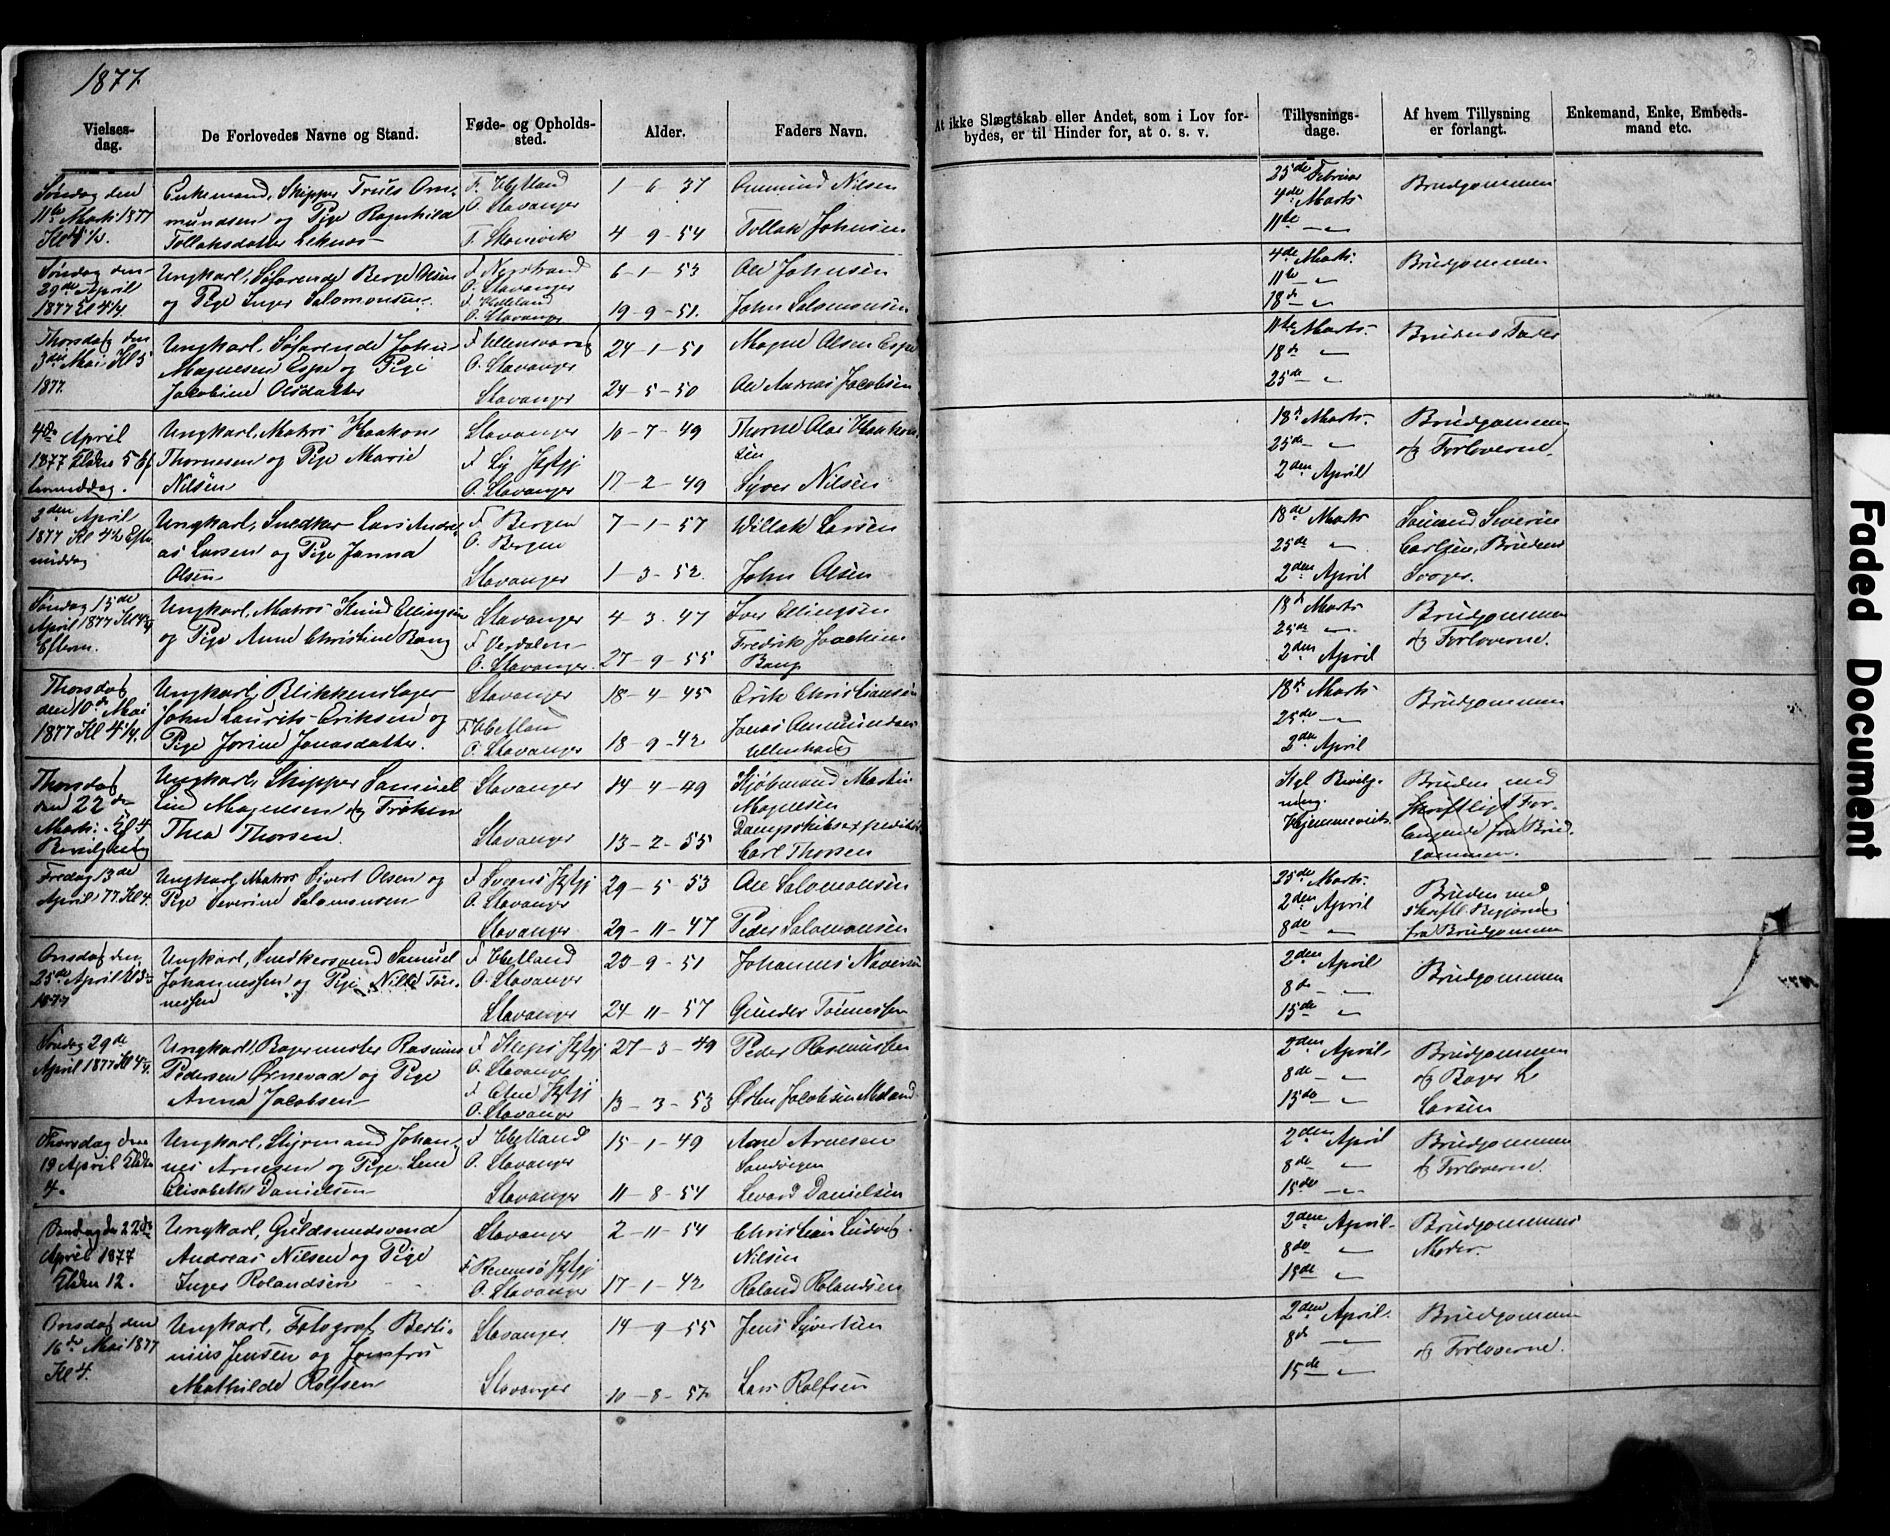 1877.
3
Vielses-
dag.
De Forlovedes Navne og Stand.
Føde- og Opholds-
sted.
Alder.
Faders Navn.
At ikke Slægtskab eller Andet, som i Lov for-
bydes, er til Hinder for, at o. s. v.
Tillysnings-
dage.
Af hvem Tillysning
er forlangt.
Enkemand, Enke, Embeds-
mand etc.
Søndag den
11te Marts 1877
Enkemand, Skipper Truls Om-
mundsen og Pige Ragnhild
Tollaksdatter Leknes
F. Hetland
O. Stavanger
F. Skonevik
1 - 6 - 37
4 - 9 - 54
Ommund Nilsen
Tollak Johnsen
25de Februar
4de Marts
11te - " -
Brudgommen
Søndag den
29de April
1877 Kl 4 1/4
Ungkarl, Søfarende Berge Olsen
og Pige Inger Salomonsen.
F. Nerstrand
O. Stavanger
F. Hetland
O. Stavanger
6 - 1 - 53
19 - 9 - 51.
Ole Johnsen
John Salomonsen
4de Marts.
11te - " -
18de - " -
Brudgommen
Thorsdag den
3die Mai Kl 5
1877.
Ungkarl, Søfarende John
Magnesen Espe og Pige
Jacobine Olsdatter
F. Ullensvang
O. Stavanger
Stavanger
24 - 1 - 51
24 - 5 - 50
Magne Olsen Espe
Ole Andreas Jacobsen
11te Marts.
18de "
25de - " -
Brudens Fader
4de April
1877 Klokken 5 Ef
termiddag.
Ungkarl, Matros Haakon
Thornesen og Pige Marie
Nilsen
Stavanger
F. Lye
O. Stavanger
10 - 7 - 49
17 - 2 - 49
Thorne Olai Haakon
sen
Syver Nilsen
18de Marts.
25de - " -
2den April
Brudgommen
og Forloverne.
2den April
1877 Kl 4 1/2 Efter
middag
Ungkarl, Snedker Lars Andre-
as Larsen og Pige Janna
Olsen
F. Bergen
O. Bergen
Stavanger
7 - 1 - 57
1 - 3 - 52.
Willak Larsen
John Olsen
18de Marts
25de "
2den April
Sømand Severin
Carlsen, Brudens
Svoger.
Søndag 15de
April 1877 Kl 4 1/4
Efterm.
Ungkarl, Matros Knud Ellingsen
og Pige Anne Christine Bang
Stavanger
F. Verdalen
O. Stavanger.
4 - 3 - 47
27 - 9 - 55
Iver Ellingsen
Fredrik Joachim
Bang
18de Marts
25de "
2den April
Brudgommen
og Forloverne.
Thorsdag
den 10de Mai
1877 Kl 4 1/4.
Ungkarl, Blikkenslager
John Laurits Eriksen og
Pige Jorine Jonasdatter.
Stavanger
F. Hetland
O. Stavanger
18 - 4 - 45
18 - 9 - 42
Erik Christiansen
Jonas Ommundsen
Ullenhaug
18de Marts
25de - " -
2den April
Brudgommen
Thorsdag
den 22de
Marts. Kl 4.
Bevilgning
Ungkarl, Skipper Samuel
Lind Magnesen og Frøken
Thea Thorsen.
Stavanger
Stavanger
14 - 4 - 49
13 - 2 - 55
Kjøbmand Martin
Magnesen
Dampskibsexpeditør
Carl Thorsen
Kgl Bevilg-
ning.
Hjemmeviet.
Bruden med
skriftligt For-
langende fra Brud-
gommen.
Fredag 13de
April 77 Kl 4.
Ungkarl, Matros Sivert Olsen og
Pige Severine Salomonsen
O. Stavanger
Stavanger
29 - 5 - 53
29 - 11 - 47
Ole Salomonsen
Peder Salomonsen
25de Marts.
2den April
8de "
Bruden med
fra Brudgommen
Onsdag den
25de April
1877
Ungkarl, Snedkersvend Samuel
Johannessen og Pige Nille Tøn-
nessen
F. Hetland
O. Stavanger
Stavanger
23 - 9 - 51
24 - 11 - 57
Johannes
Gunder Tønnessen
2den April
8de - " -
15de "
Brudgommen
Søndag 29de
April 1877 Kl 4 1/4.
Ungkarl, Bagermester Rasmus
Pedersen Ørnevad og Pige
Anna Jacobsen
F. Klep
O. Stavanger
F. Etne
O. Stavanger
27 - 3 - 49
13 - 3 - 53
Peder Rasmussen
Østen Jacobsen Meland
2den April
8de - " -
15de - " -
Brudgommen
og Bager L
Larsen
Thorsdag den
19 April Klokken
4.
Ungkarl, Styrmand Johan-
nes Arnesen og Pige Lene
Elisabeth Danielsen
F. Hetland
O. Stavanger
Stavanger
15 - 1 - 49
11 - 8 - 54
Arne Arnesen
Sandvigen
Levard Danielsen
2den April
8de "
15de - " -
Brudgommen
og Forloverne.
Søndag den 22de
April 1877
Klokken 12.
Ungkarl, Guldsmedsvend
Andreas Nilsen og Pige
Inger Rolandsen
Stavanger
F. Rennesø
O. Stavanger
2 - 11 - 54
17 - 1 - 42
Christian Ludvig
Nilsen
Roland Rolandsen
2den April
8de "
15de "
Brudgommens
Moder.
Onsdag den
16de Mai 1877
Kl 4.
Ungkarl, Fotograf Berti-
nius Jensen og Jomfru
Mathilde Rolfsen
Stavanger
Stavanger
14 - 9 - 55
10 - 8 - 57
Jens Syvertsen
Lars Rolfsen
2den April.
8de - " -
15de - " -
Brudgommen
og Forloverne.
Faded Document